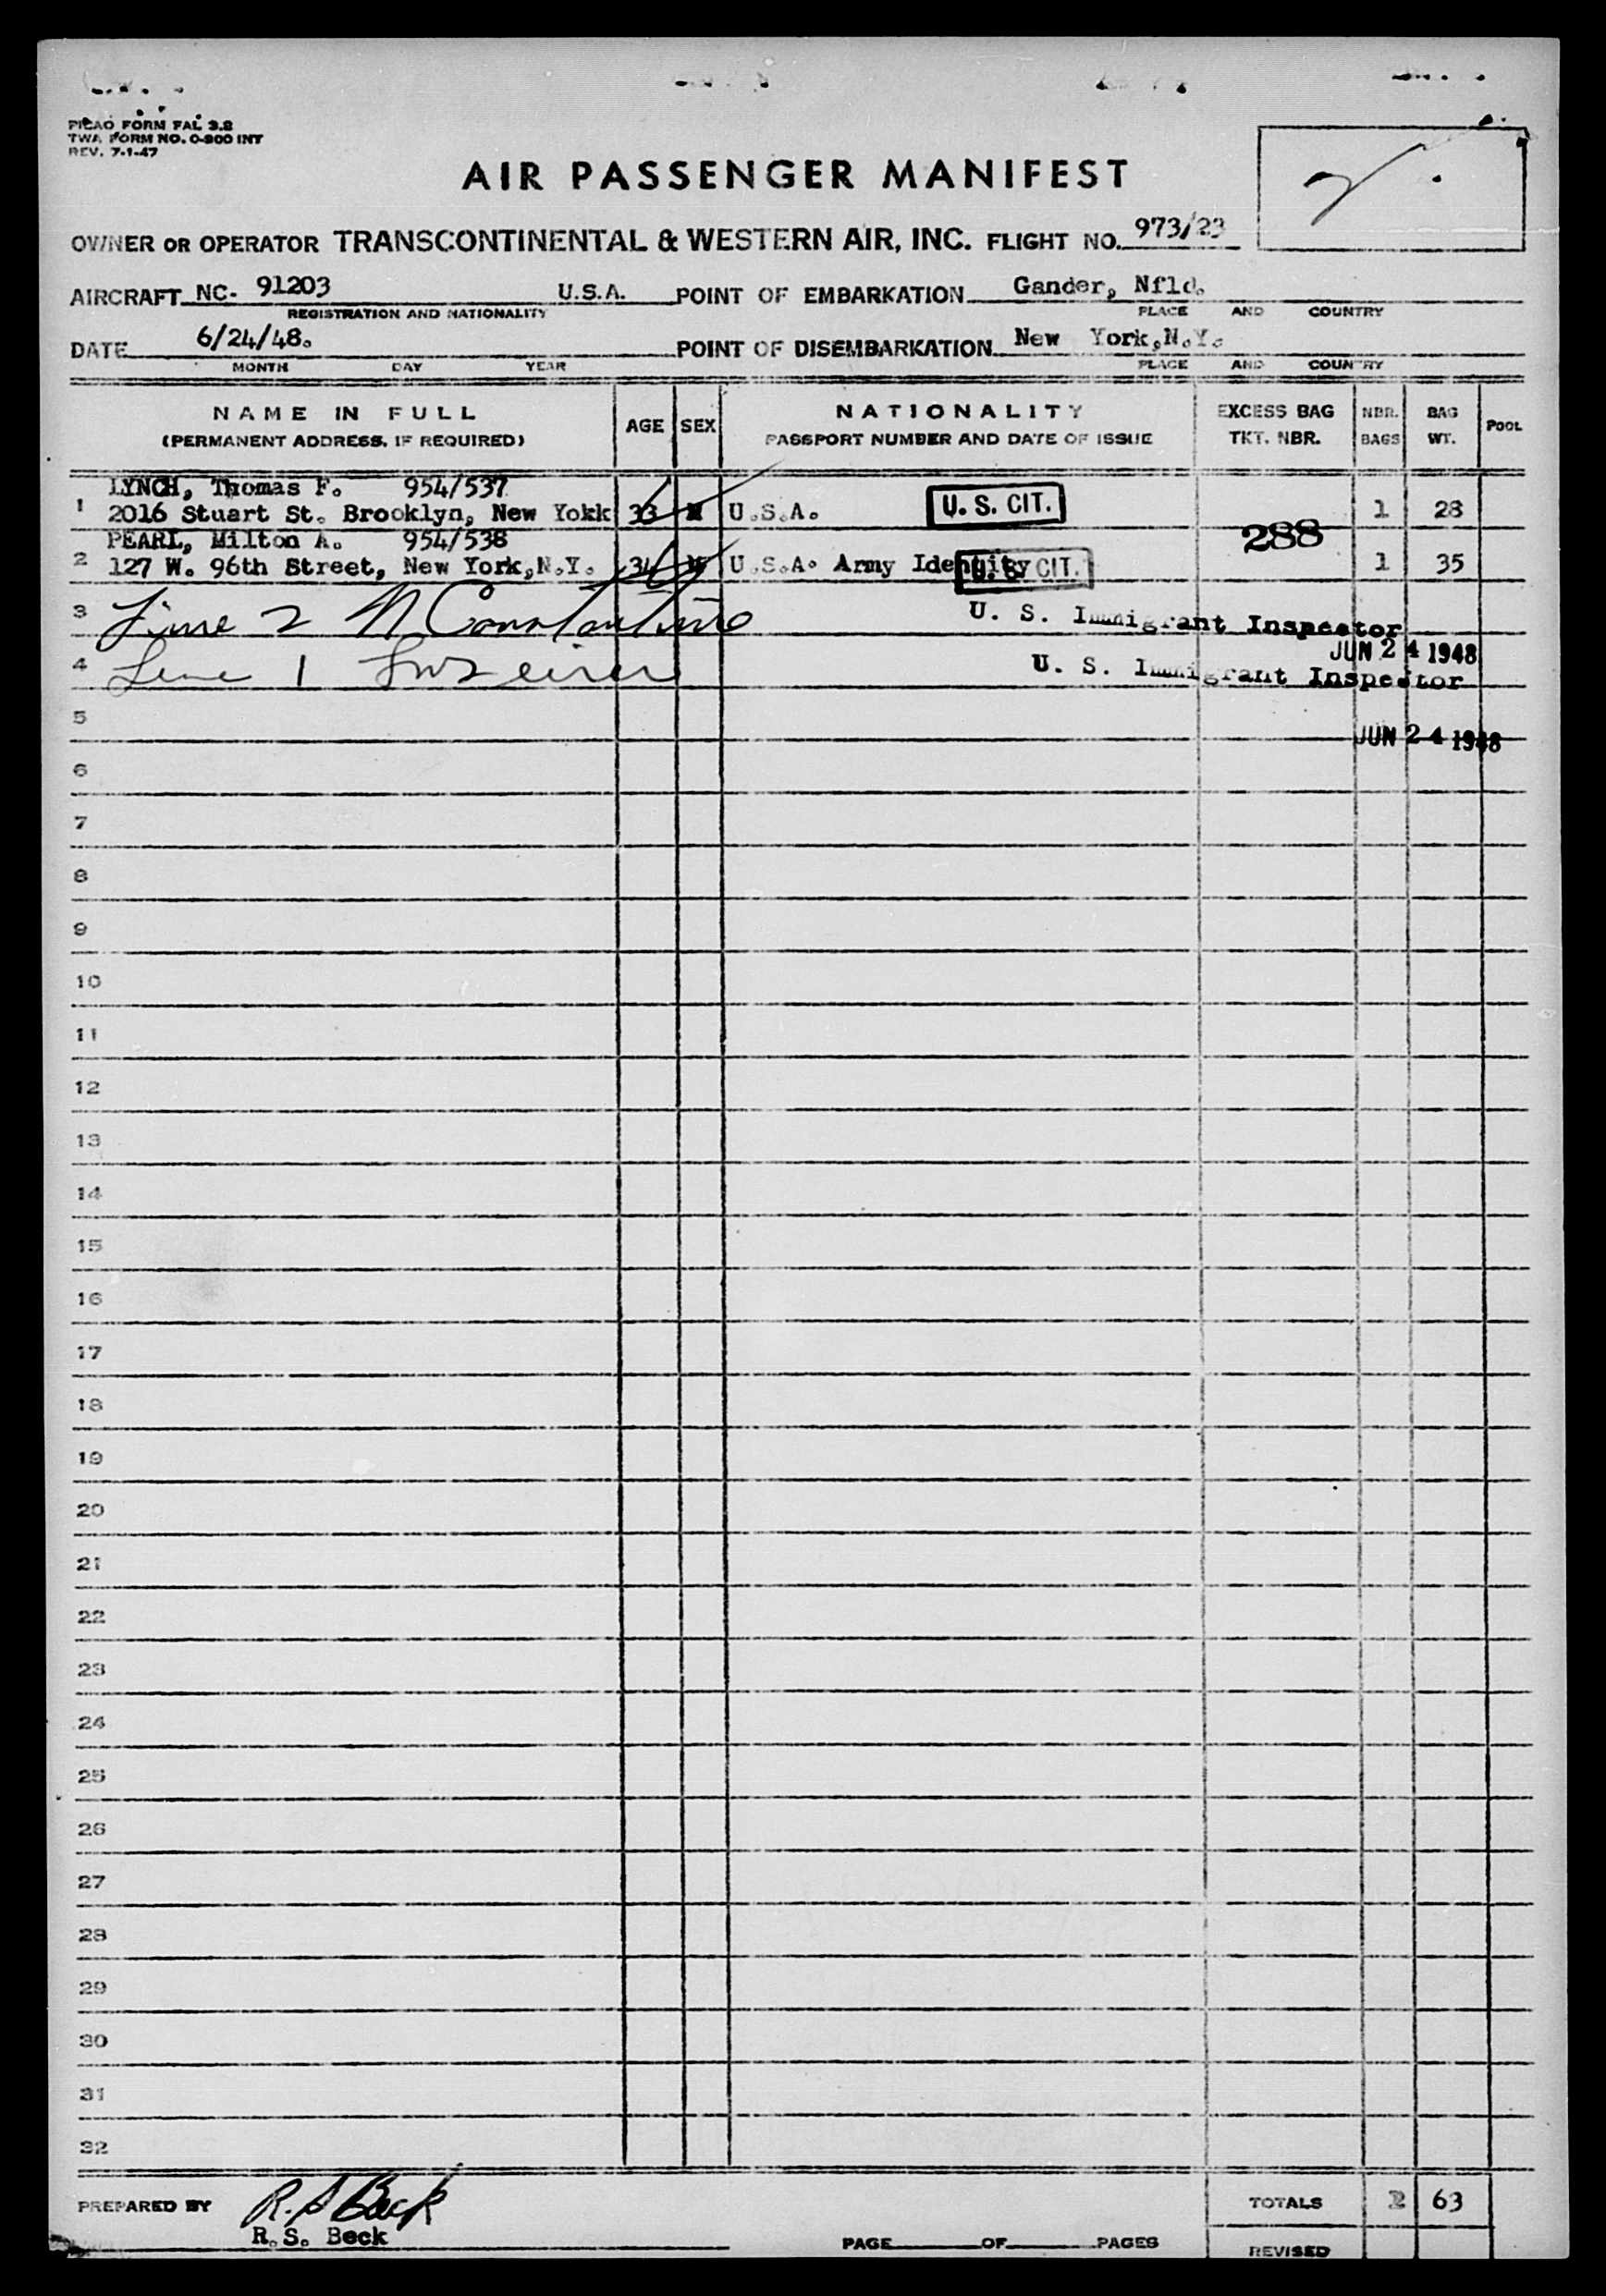 PICAO FORM FAL 3.2
TWA FORM NO. O-900 INT
REV. 7-1-47
AIR PASSENGER MANIFEST
OWNER OR OPERATOR TRANSCONTINENTAL & WESTERN AIR, INC. FLIGHT NO. 973/23
AIRCRAFT NC- 91203 U.S.A. POINT OF EMBARKATION Gander, Nfld.
REGISTRATION AND NATIONALITY PLACE AND COUNTRY
DATE 6/24/48. POINT OF DISEMBARKATION New York,N.Y.
MONTH DAY YEAR PLACE AND COUNTRY
NAME IN FULL AGE SEX NATIONALITY EXCESS BAG NBR. BAG POOL
(PERMANENT ADDRESS, IF REQUIRED) PASSPORT NUMBER AND DATE OF ISSUE TKT. NBR. BAGS WT.
LYNCH, Thomas F. 954/537
1 2016 Stuart St. Brooklyn, New Yokk 33 M U.S.A. U. S. CIT. 1 28
PEARL, Milton A. 954/538 288
2 127 W. 96th Street, New York,N.Y. 34 M U.S.A. Army Identity U. S. CIT. 1 35
3 Line 2 N Constantine U. S. Immigrant Inspector
JUN 24 1948
4 Line 1 U. S. Immigrant Inspector
5
JUN 24 1948
6
7
8
9
10
11
12
13
14
15
16
17
18
19
20
21
22
23
24
25
26
27
28
29
30
31
32
PREPARED BY R.S Beck TOTALS 2 63
R.S. Beck
PAGE OF PAGES REVISED